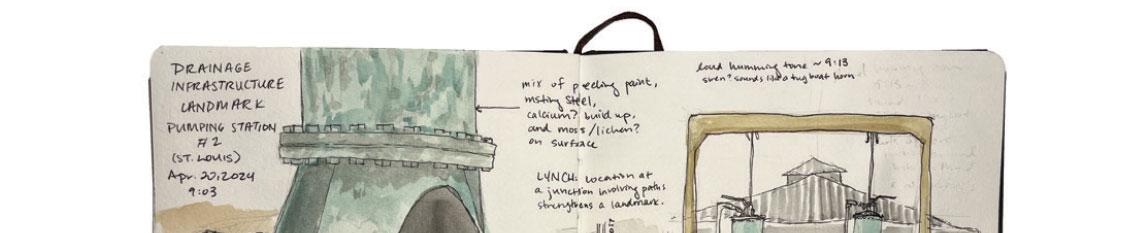 DRAINAGE
INFRASTRUCTURE
LANDMARK
PUMPING STATION
#2
(ST. LOUIS)
Apr. 20, 2024
9:03
mix of peeling paint,
rusting steel,
calcium? build up,
and moss/lichen?
on surface
LYNCH: Location at
a junction involving paths
strengthens a landmark.
loud humming tone ~ 9:13
siren? sounds like a tug boat horn